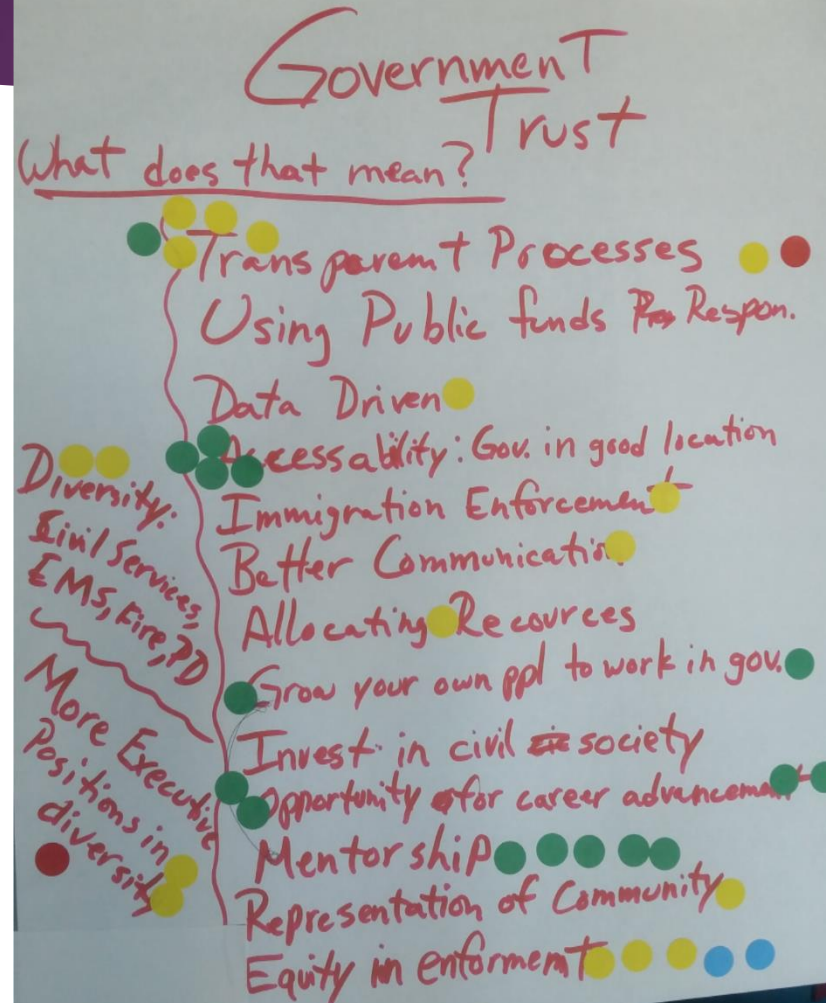 Government
Trust
What does that mean?
Transparemt Processes
Using Public funds Respon.
Data Driven
Accessability: Gov. in good location
Immigration Enforcement
Better Communication
Allocating Recources
Grow your own ppl to work in gov.
Invest in civil society
Opportunity for career advancement
Mentorship
Representation of Community
Equity in enforment
Diversity:
Civil Services,
EMS, Fire, PD
More Executive
Positions in
diversity